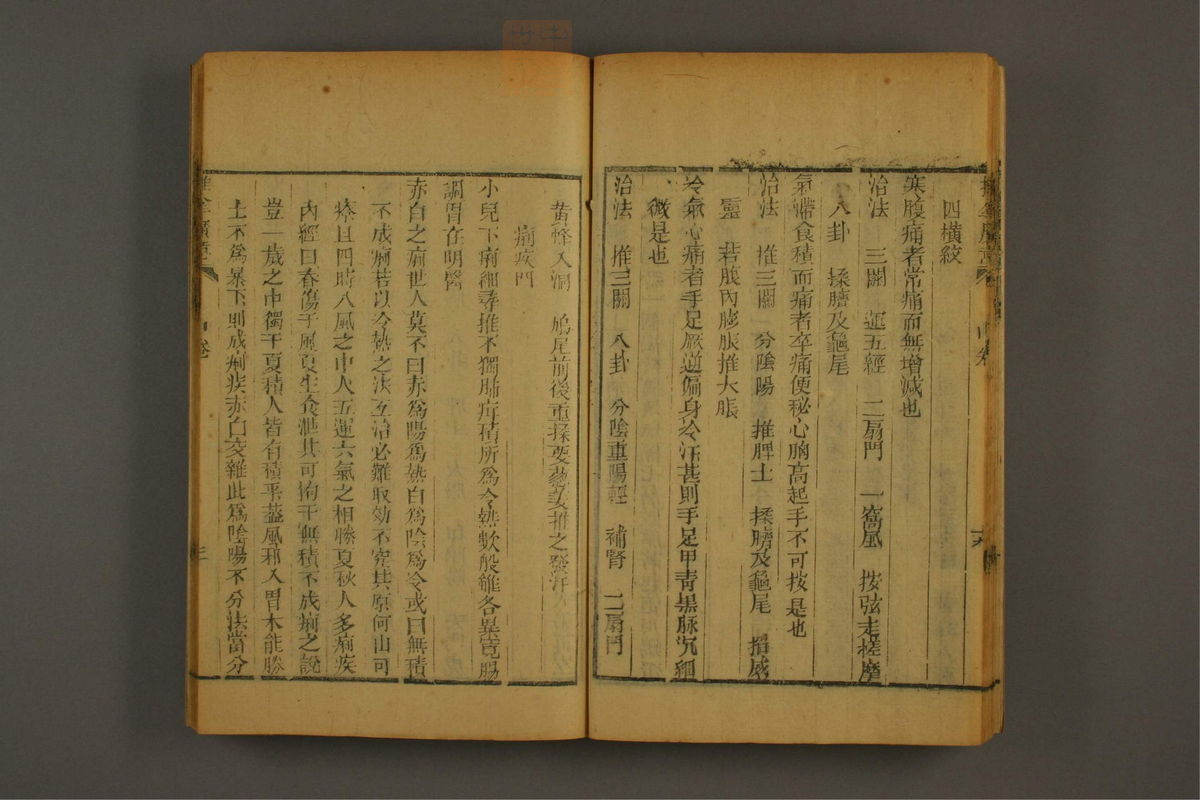 四橫紋
寒腹痛者常痛而無增減也
治法 三關 運五經 二扇門 一窩風 按弦走搓摩
八卦 揉臍及龜尾
氣滯食積而痛者卒痛便秘心胸高起手不可按是也
治法 推三關 分陰陽 推脾土 揉臍及龜尾 掐威
靈 若腹內膨脹推大腸
冷氣心痛者手足厥逆偏身冷汗甚則手足甲青黑脉沉細
微是也
治法 推三關 八卦 分陰重陽輕 補腎 二扇門
黃蜂入洞 鳩尾前後重揉要葱姜推之發汗
痢疾門
小兒下痢細尋推不獨肺疳積所爲冷熱數般雖各異寛腸
調胃在明醫
赤白之痢世人莫不曰赤爲陽爲熱白爲陰爲冷或曰無積
不成痢若以冷熱之法互治必難取効不究其原何由可
療且四時八風之中人五運六氣之相勝夏秋人多痢疾
內經曰春傷于風夏生飡泄其可拘于無積不成痢之說
豈一歲之中獨于夏積人皆有積乎蓋風邪入胃木能勝
土不爲暴下則成痢疾赤白交雜此爲陰陽不分法當分